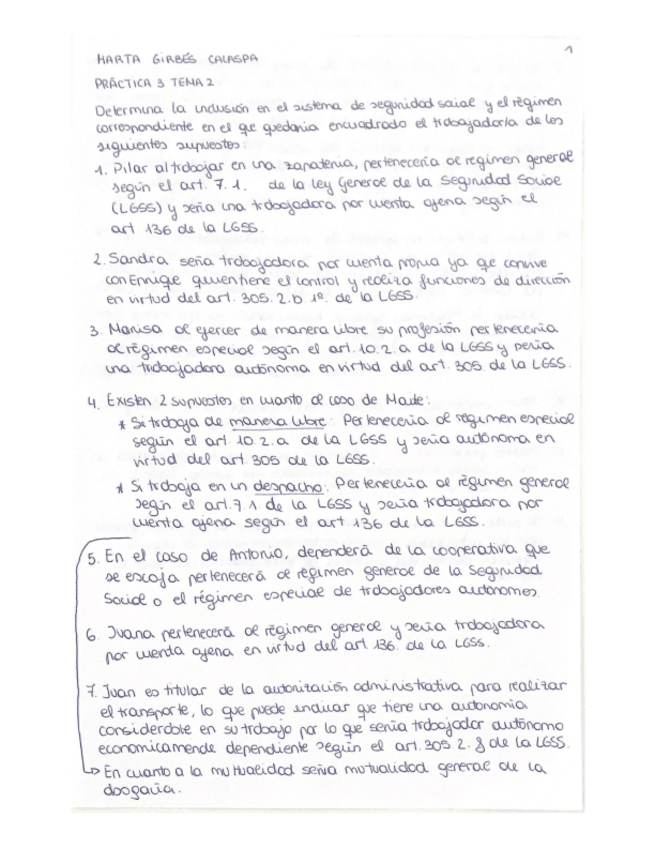 1
MARTA GIRBÉS CALASPA
PRÁCTICA 3 TEMA 2
Determina la inclusión en el sistema de seguridad social y el régimen
correspondiente en el que quedaría encuadrado el trabajador/a de los
siguientes supuestos:
1. Pilar al trabajar en una zapatería, pertenecería al regimen general
según el art. 7.1. de la Ley General de la Seguridad Social
(LGSS) y sería una trabajadora por cuenta ajena según el
art 136 de la LGSS.
2. Sandra sería trabajadora por cuenta propia ya que convive
con Enrique quien tiene el control y realiza funciones de dirección
en virtud del art. 305.2.b 1º. de la LGSS.
3. Marisa al ejercer de manera libre su profesión pertenecería
al régimen especial según el art. 10.2.a de la LGSS y sería
una trabajadora autónoma en virtud del art. 305 de la LGSS.
4. Existen 2 supuestos en cuanto al caso de Maite:
* Si trabaja de manera libre: Pertenecería al régimen especial
según el art. 10.2.a de la LGSS y sería autónoma en
virtud del art. 305 de la LGSS.
* Si trabaja en un despacho: Pertenecería al régimen general
según el art. 7.1. de la LGSS y sería trabajadora por
cuenta ajena según el art 136 de la LGSS.
5. En el caso de Antonio, dependerá de la cooperativa que
se escoja pertenecerá al régimen general de la Seguridad
Social o el régimen especial de trabajadores autónomos.
6. Juana pertenecerá al régimen general y sería trabajadora
por cuenta ajena en virtud del art. 136. de la LGSS.
7. Juan es titular de la autorización administrativa para realizar
el transporte, lo que puede indicar que tiene una autonomía
considerable en su trabajo por lo que sería trabajador autónomo
economicamente dependiente según el art. 305 2. f de la LGSS.
↳ En cuanto a la mutualidad sería mutualidad general de la
abogacía.